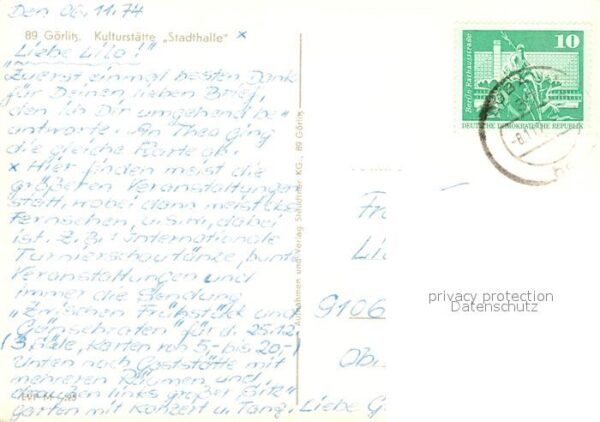 Den 06.11.74
89 Görlitz. Kulturstätte „Stadthalle" x
Liebe Lilo!"
Zuerst einmal besten Dank
für Deinen lieben Brief,
den ich Dir umgehend be"
antworte. An Theo ging
die gleiche Karte ab.
x Hier finden meist die
größeren Veranstaltungen
statt, wobei dann meist das
Fernsehen, u.s.w., dabei
ist. Z.B.: Internationale
Turnierschautänze, bunte
Veranstaltungen und
immer die Sendung
"Zwischen Frühstück und
Gänsebraten" für d. 25.12.
(3 Säle, Karten von 5,- bis 20,-)
Unten noch Gaststätte mit
mehreren Räumen, und
draußen links großer "Sitz"
garten mit Konzert u. Tanz. Liebe G
Aufnahmen und Verlag Stöhldner KG., 89 Görlitz
10
Berlin, Rathausstraße
DEUTSCHE DEMOKRATISCHE REPUBLIK
-8.11.
Fr
Li
9106
Ob
privacy protection
Datenschutz